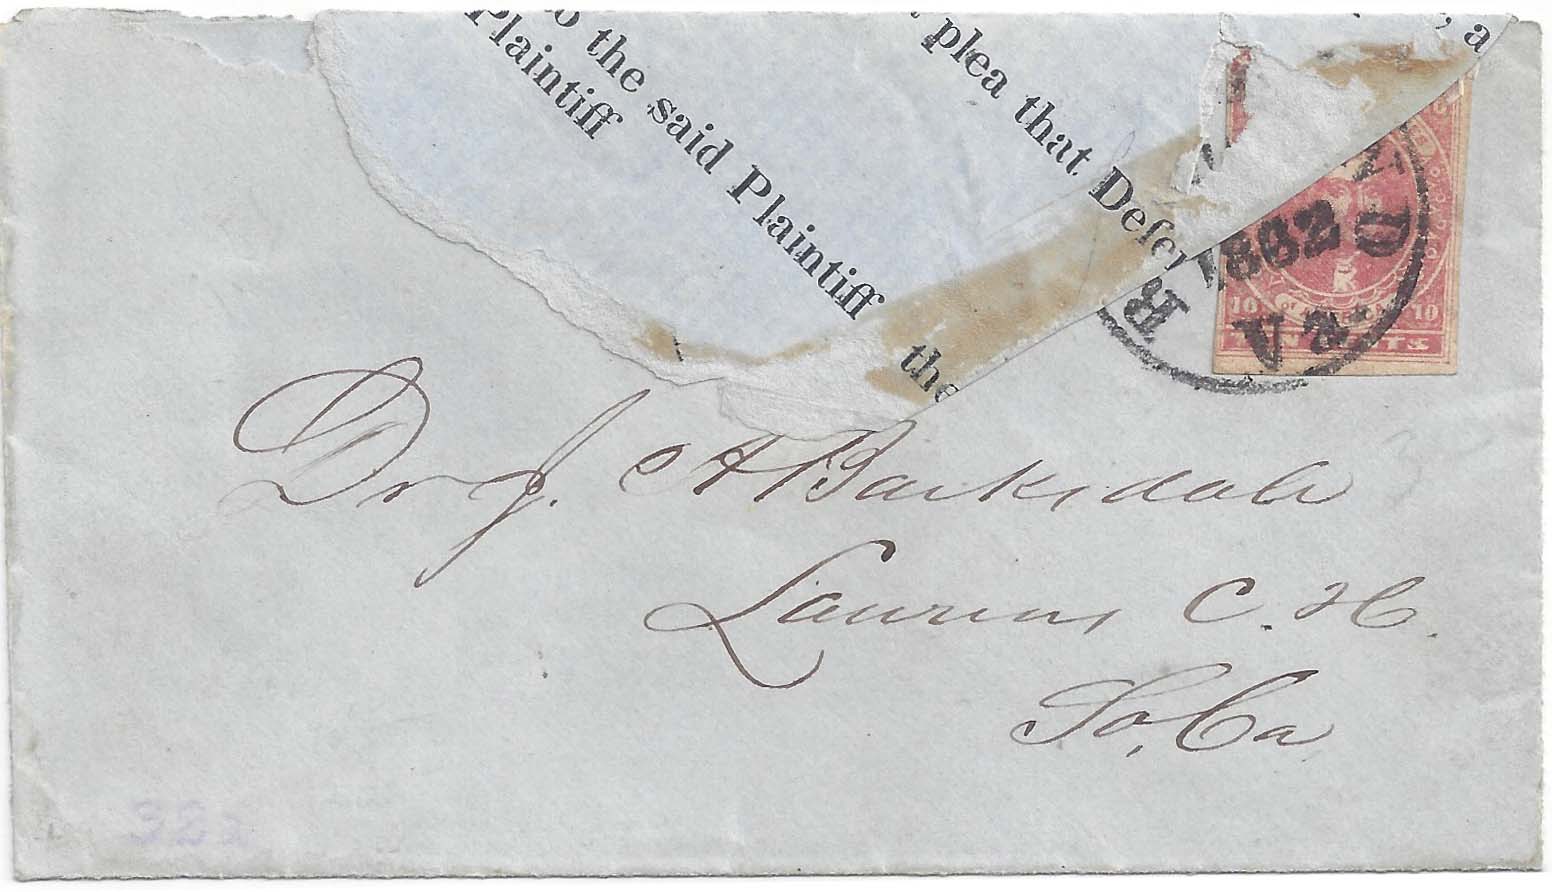 to the said Plaintiff
Plaintiff
plea that Defen
, a
the
1862
D
Va.
R
10 10
TEN CENTS
Dr J. A Barksdale
Laurens C. H.
So, Ca
382